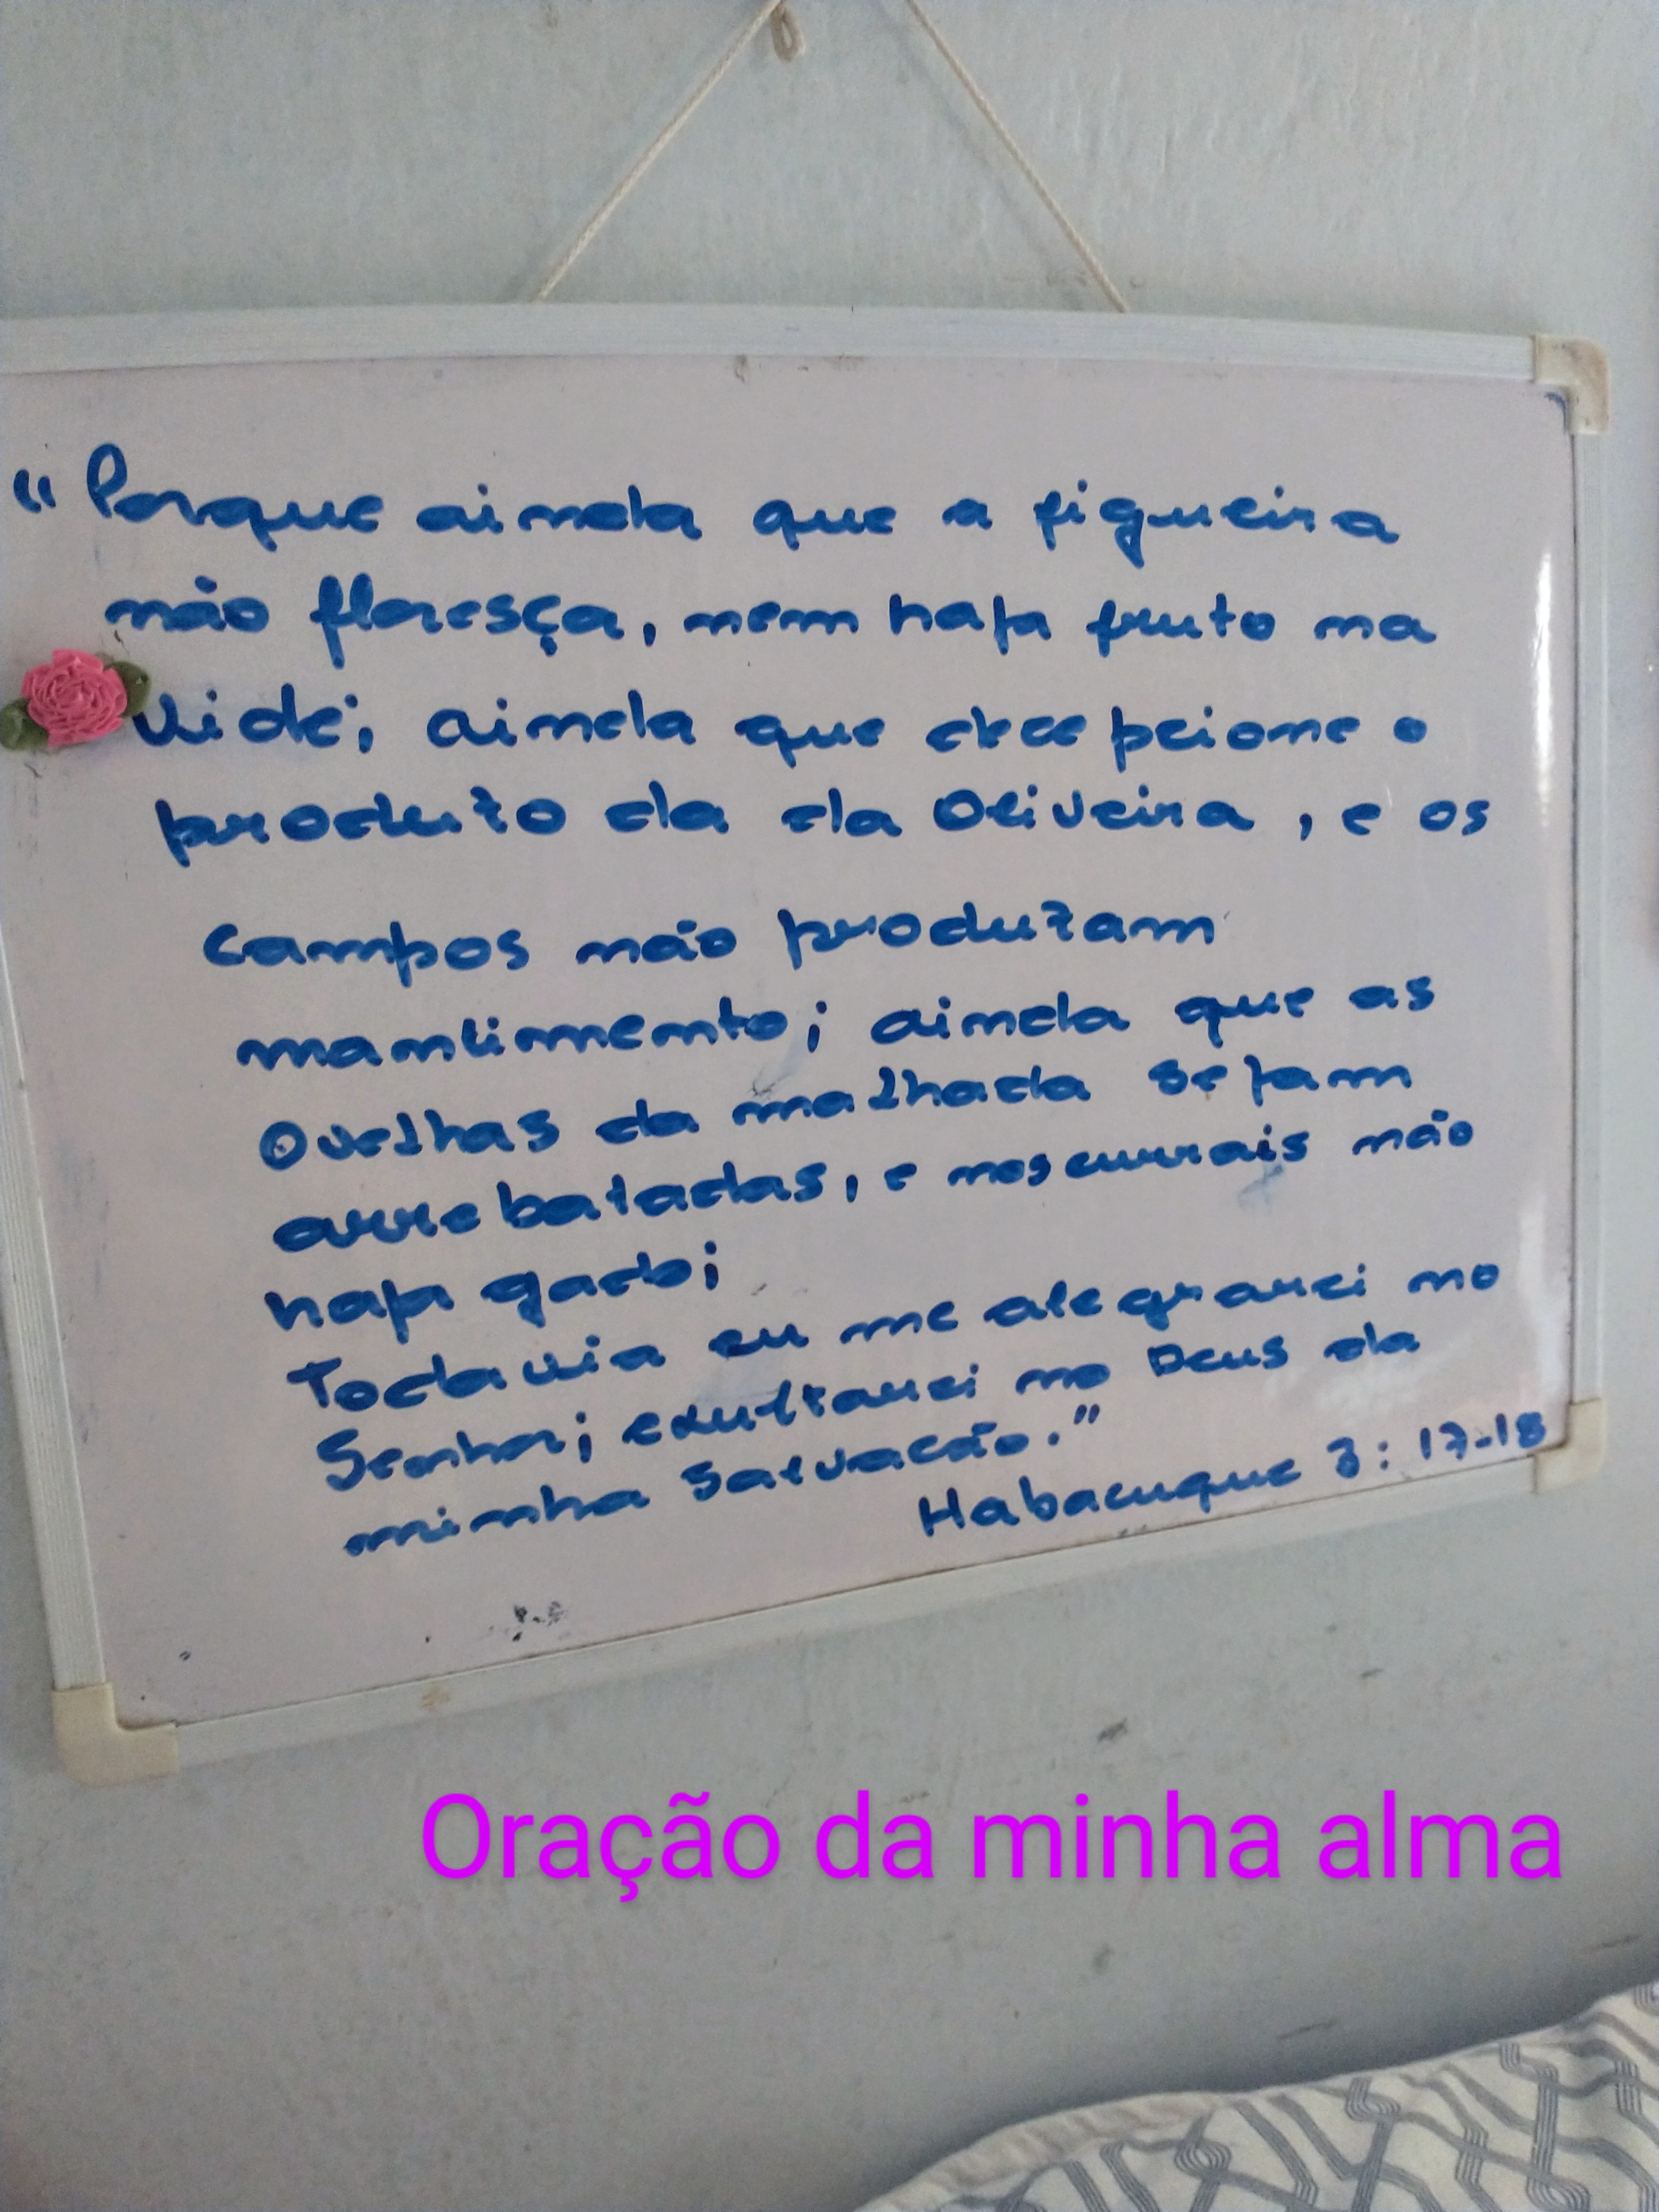 "Porque ainda que a figueira
não floresça, nem haja fruto na
vide; ainda que decepcione o
produto da da Oliveira, e os
campos não produzam
mantimento; ainda que as
Ovelhas da malhada sejam
arrebatadas, e nos currais não
haja gado;
Todavia eu me alegrarei no
Senhor; exultarei no Deus da
minha salvacão."
Habacuque 3: 17-18
Oração da minha alma